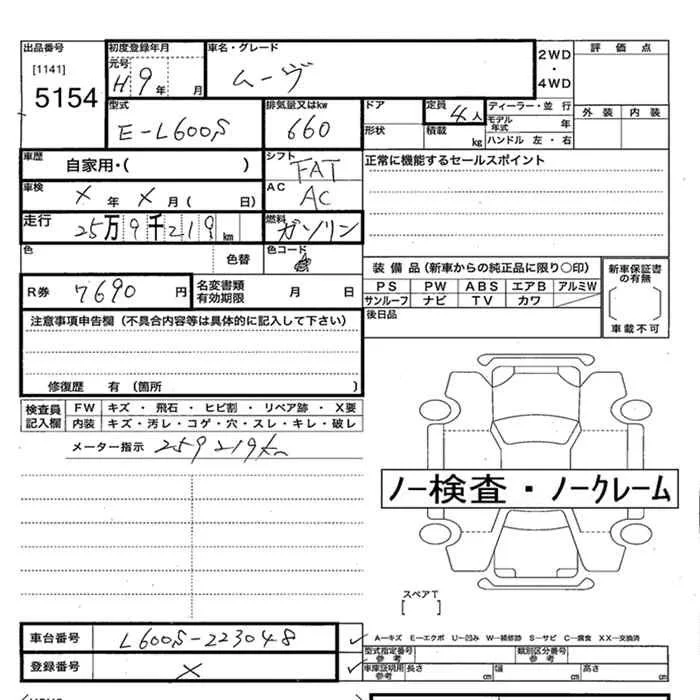 出品番号 初度登録年月 車名・グレード 2WD 評価点
[1141] 元号 ・
5154 H 9 年 月 ムーヴ 4WD
型式 排気量又はkw ドア 定員 4人 ディーラー・並行 外装 内装
E-L600S 660 形状 積載 kg モデル年式 年
ハンドル 左・右
車歴 自家用・( ) シフト FAT 正常に機能するセールスポイント
車検 X 年 X 月 ( 日) AC AC
走行 25万9千219km 燃料 ガソリン
色 色替 色コード
装備品(新車からの純正品に限り○印) 新車保証書の有無
R券 7690 円 名変書類有効期限 月 日 PS PW ABS エアB アルミW
サンルーフ ナビ TV カワ
注意事項申告欄(不具合内容等は具体的に記入して下さい) 後日品 車載不可
修復歴 有 (箇所 )
検査員記入欄 FW キズ・飛石・ヒビ割・リペア跡・X要
内装 キズ・汚レ・コゲ・穴・スレ・キレ・破レ
メーター指示 259219km
ノー検査・ノークレーム
スペアT
[ ]
車台番号 L600S-223048 A-キズ E-エクボ U-凹み W-補修跡 S-サビ C-腐食 XX-交換済
型式指定番号 参考 類別区分番号 参考
登録番号 X 車庫証明用 参考 長さ cm 幅 cm 高さ cm